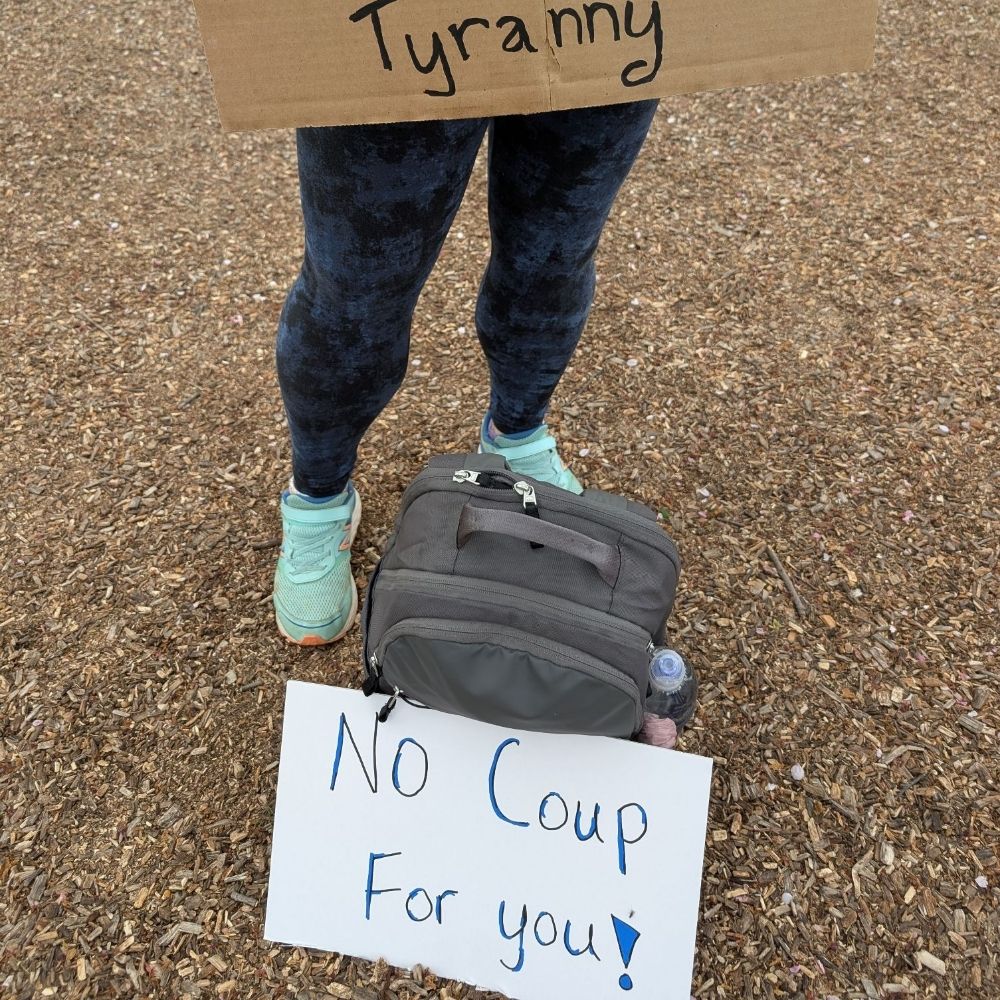 Tyranny
No Coup
For you!